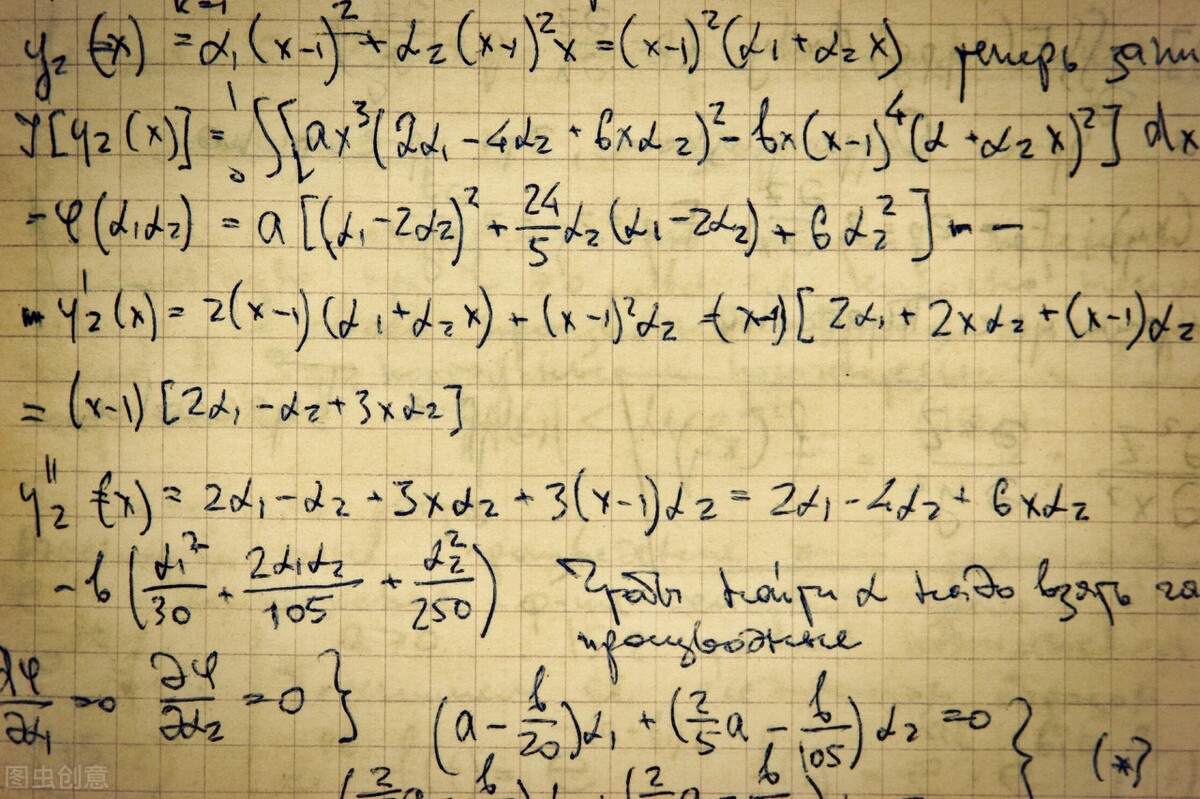 k=1
y₂(x) = α₁(x-1)² + α₂(x-1)²x = (x-1)²(α₁+α₂x) теперь запи
J[y₂(x)] = ∫₀¹[ax³(2α₁-4α₂+6xα₂)² - bx(x-1)⁴(α+α₂x)²]dx
= φ(α₁α₂) = a[(α₁-2α₂)² + 24/5 α₂(α₁-2α₂) + 6α₂²] - -
y₂'(x) = 2(x-1)(α₁+α₂x) + (x-1)²α₂ = (x-1)[2α₁+2xα₂+(x-1)α₂
= (x-1)[2α₁-α₂+3xα₂]
y₂''(x) = 2α₁-α₂+3xα₂+3(x-1)α₂ = 2α₁-4α₂+6xα₂
-b(α₁²/30 + 2α₁α₂/105 + α₂²/250) Чтобы найти α надо взять ча
производные
∂φ/∂α₁=0 ∂φ/∂α₂=0} (a - b/20)α₁ + (2/5 a - b/105)α₂ =0} (*)
图虫创意